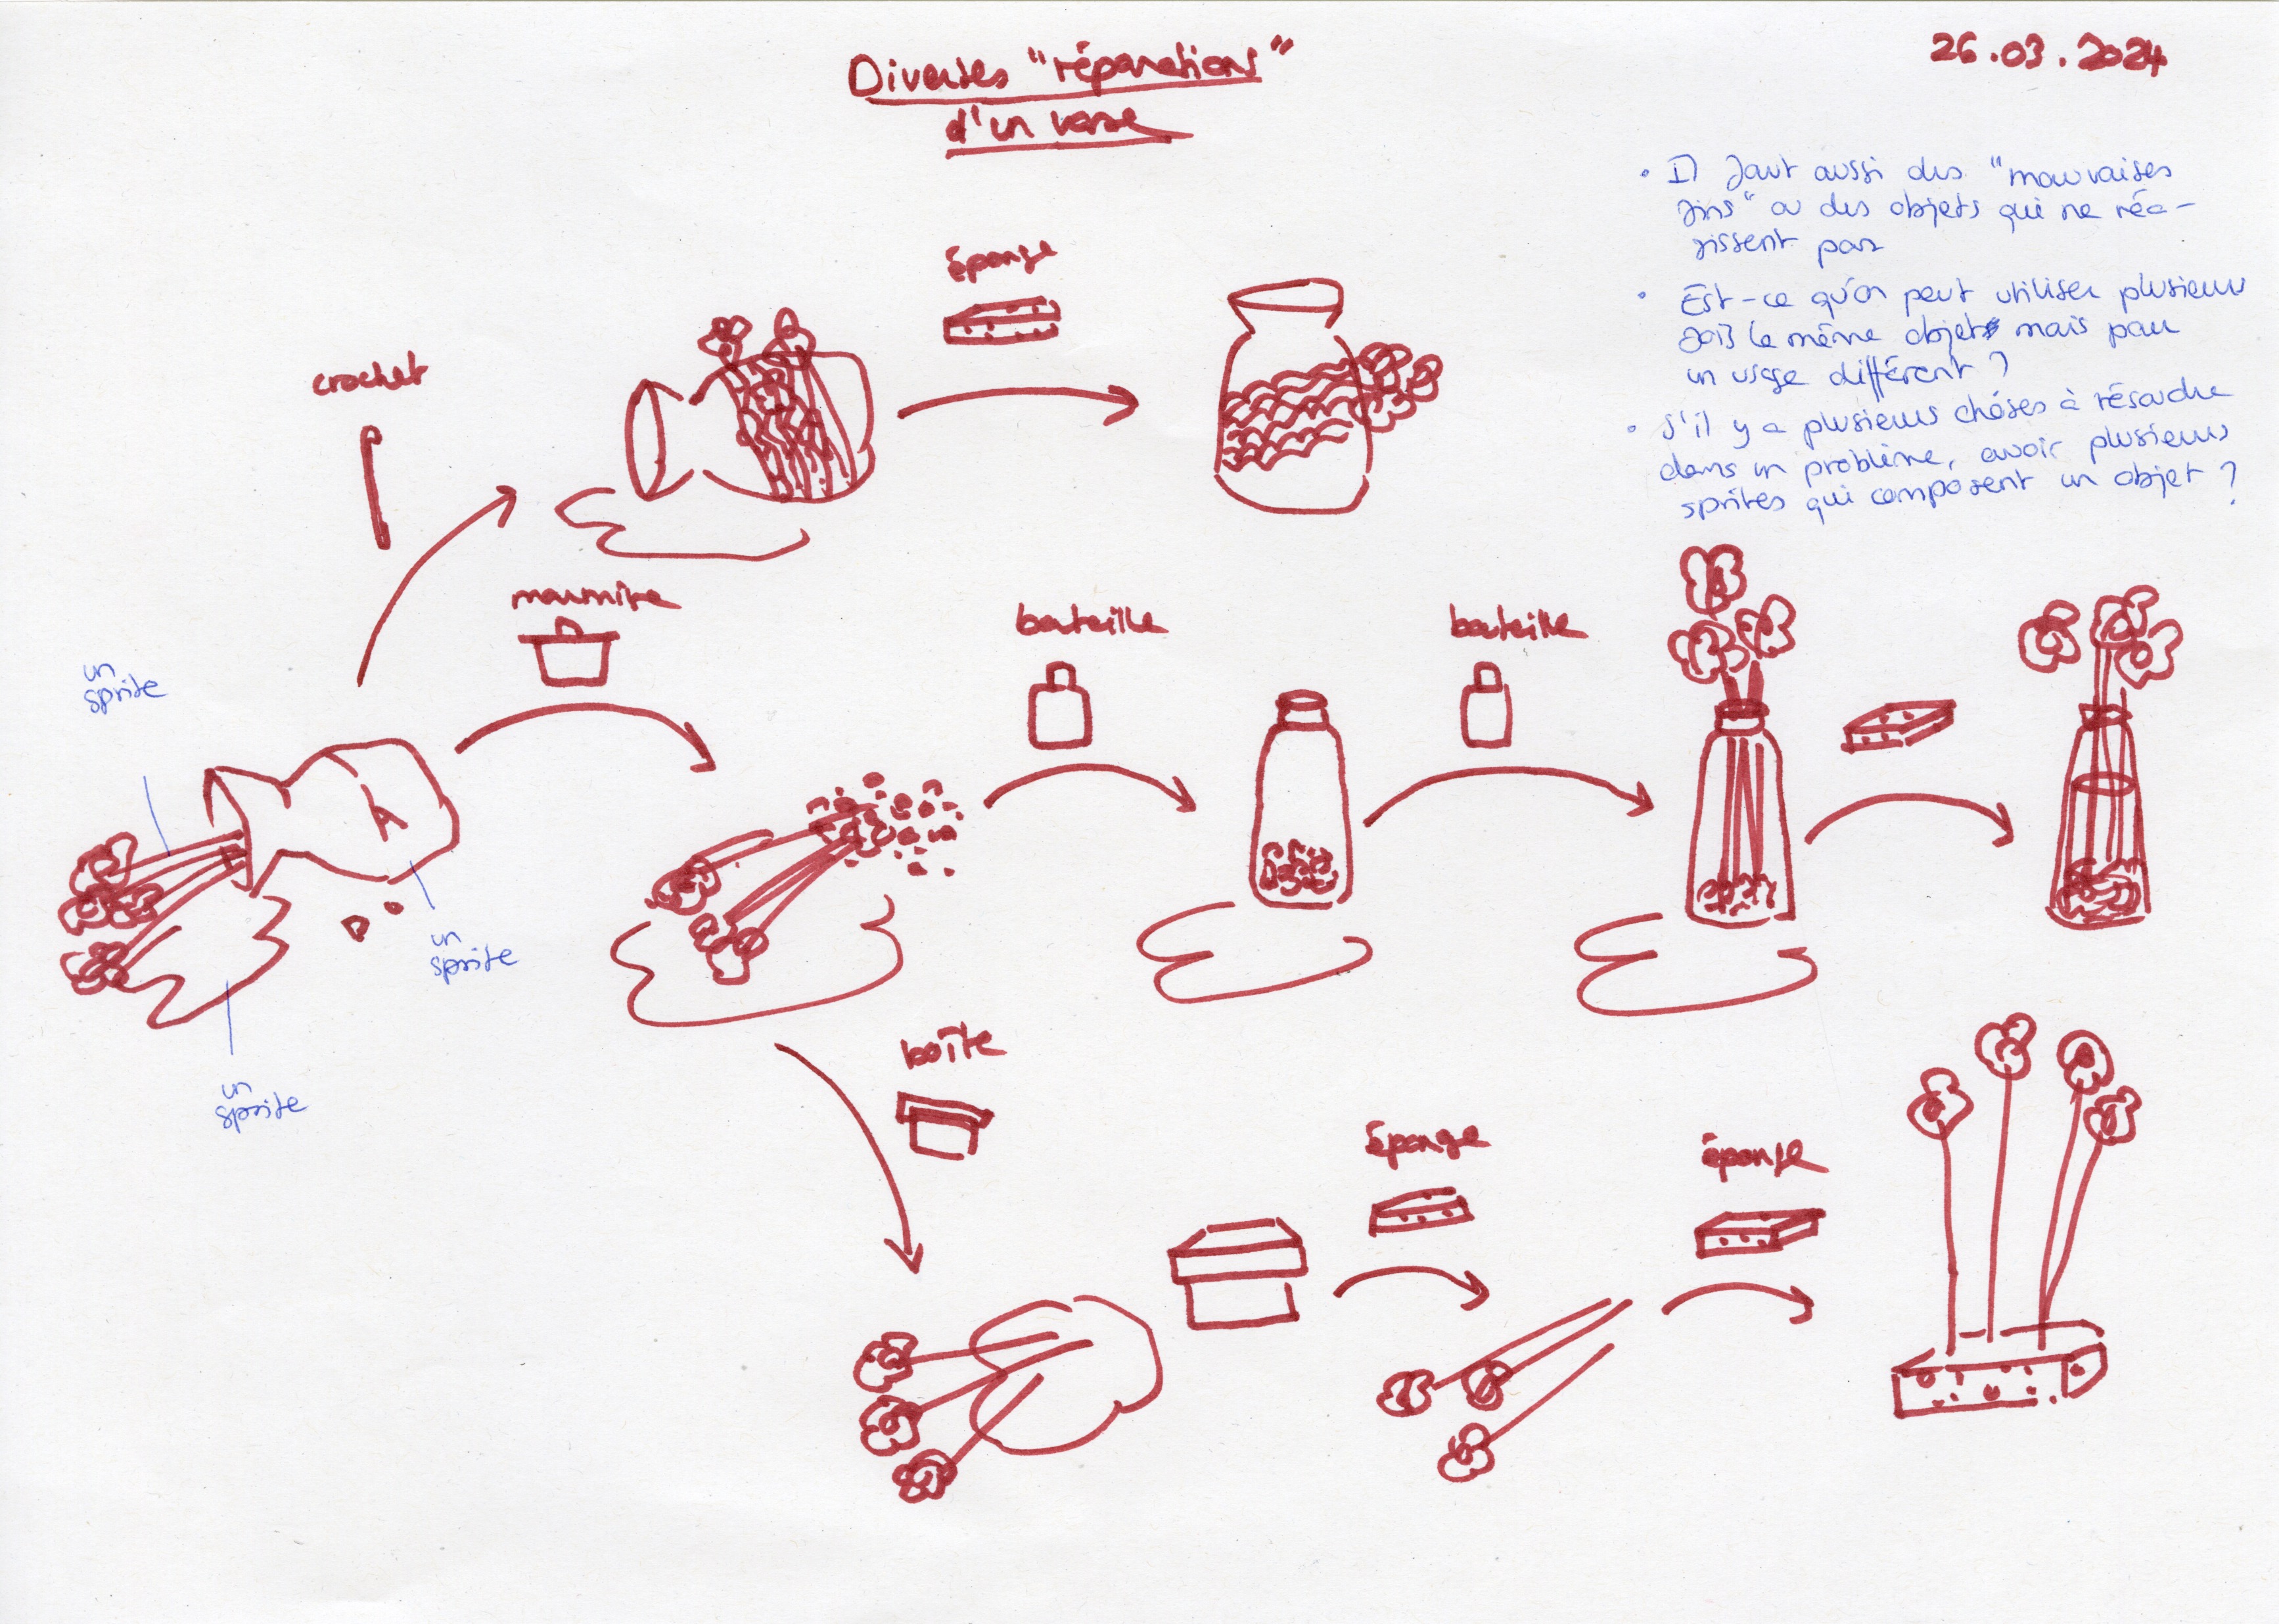 Diverses "réparations"
d'un vase
26.03.2024
• Il faut aussi des "mauvaises
fins" ou des objets qui ne réa-
gissent pas
• Est-ce qu'on peut utiliser plusieurs
fois le même objet mais pour
un usage différent ?
• S'il y a plusieurs choses à résoudre
dans un problème, avoir plusieurs
sprites qui composent un objet ?
éponge
crochet
marmite
bouteille
bouteille
un
sprite
un
sprite
un
sprite
boîte
éponge
éponge